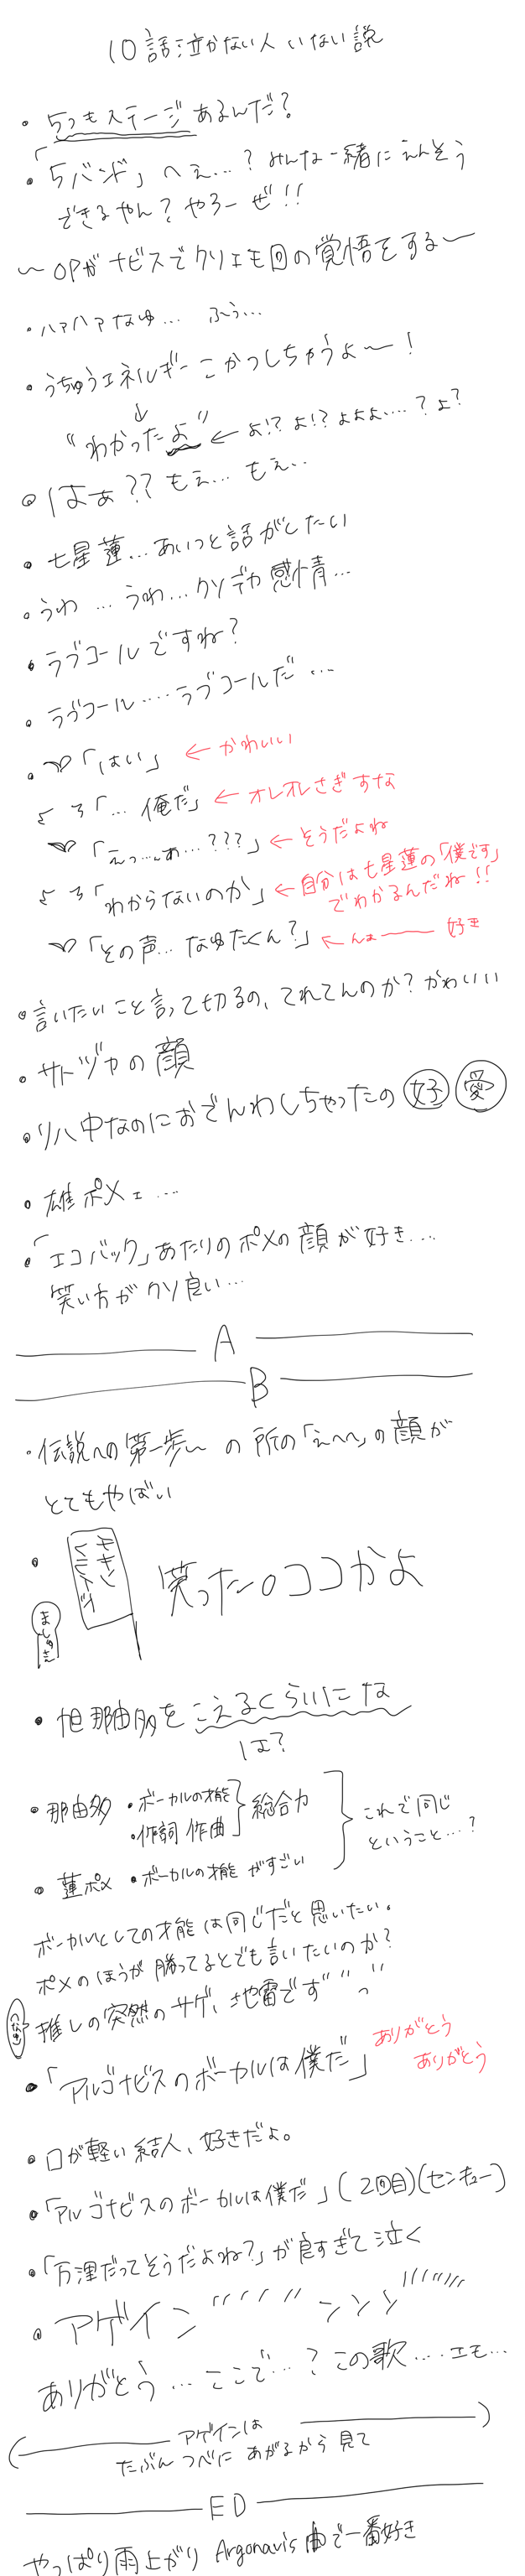 10話泣かない人いない説
・5つもステージあるんだ?
・「5バンド」へぇ…?みんな一緒にえんそう
できるやん?やろーぜ!!
〜OPがナビスでクソエモ回の覚悟をする〜
・ハァハァなゆ… ふぅ…
・うちゅうエネルギーこかつしちゃうよ〜!
↓
"わかったよ" ← よ!?よ!?よよよ…?よ?
・はぁ??もえ…もえ…
・七星蓮…あいつと話がしたい
・うわ…うわ…クソデカ感情…
・ラブコールですね?
・ラブコール…ラブコールだ…
・「はい」 ←かわいい
「…俺だ」 ←オレオレさぎすな
「えっ…あ…???」 ←そうだよね
「わからないのか」 ←自分は七星蓮の「僕です」
でわかるんだね!!
「その声…なゆたくん?」 ←んぁ── 好き
・言いたいこと言って切るの、てれてんのか?かわいい
・サトヅカの顔
・リハ中なのにおでんわしちゃったの 好 愛
・雄ポメェ…
・「エコバック」あたりのポメの顔が好き…
笑い方がクソ良い…
A
B
・伝説への第一歩〜の所の「えへへ」の顔が
とてもやばい
・チキンプレイズ
ましゅさん
笑ったwココかよ
・旭那由多をこえるくらいにな
は?
・那由多 ・ボーカルの才能
・作詞作曲
総合力
・蓮ポメ ・ボーカルの才能がすごい
これで同じ
ということ…?
ボーカルとしての才能は同じだと思いたい。
ポメのほうが勝ってるとでも言いたいのか?
推しの突然のサゲ、地雷です""っ"
・「アルゴナビスのボーカルは僕だ」 ありがとう
ありがとう
・口が軽い結人、好きだよ。
・「アルゴナビスのボーカルは僕だ」(2回目)(センキュー)
・「万浬だってそうだよね?」が良すぎて泣く
・アゲイン""""ンンン"""""
ありがとう…ここで…?この歌…エモ…
(アゲインは
たぶんつべにあがるから見て)
ED
やっぱり雨上がりArgonavis曲で一番好き